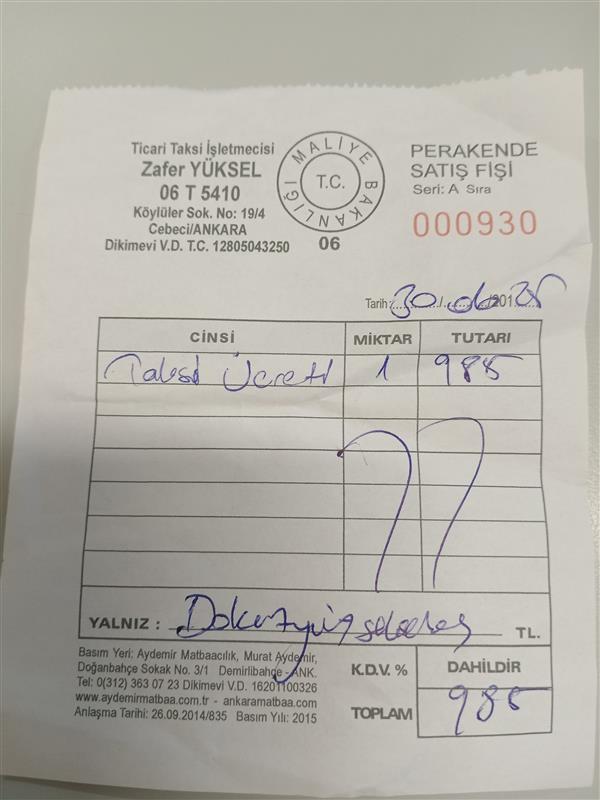 Ticari Taksi İşletmecisi
Zafer YÜKSEL
06 T 5410
Köylüler Sok. No: 19/4
Cebeci/ANKARA
Dikimevi V.D. T.C. 12805043250
MALİYE BAKANLIĞI
T.C.
06
PERAKENDE
SATIŞ FİŞİ
Seri: A Sıra
000930
Tarih: 30/06/201 25
CİNSİ MİKTAR TUTARI
Taksi Ücreti 1 985
YALNIZ : Dokuzyüz seksenbeş TL.
Basım Yeri: Aydemir Matbaacılık, Murat Aydemir,
Doğanbahçe Sokak No: 3/1 Demirlibahçe - ANK.
Tel: 0(312) 363 07 23 Dikimevi V.D. 16201100326
www.aydemirmatbaa.com.tr - ankaramatbaa.com
Anlaşma Tarihi: 26.09.2014/835 Basım Yılı: 2015
K.D.V. % DAHİLDİR
TOPLAM 985